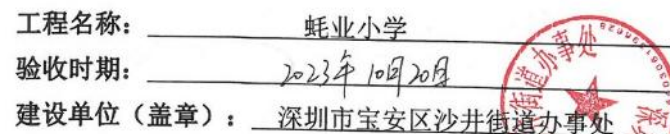 工程名称：蚝业小学
验收时期：2023年10月20日
建设单位（盖章）：深圳市宝安区沙井街道办事处
街道办事处